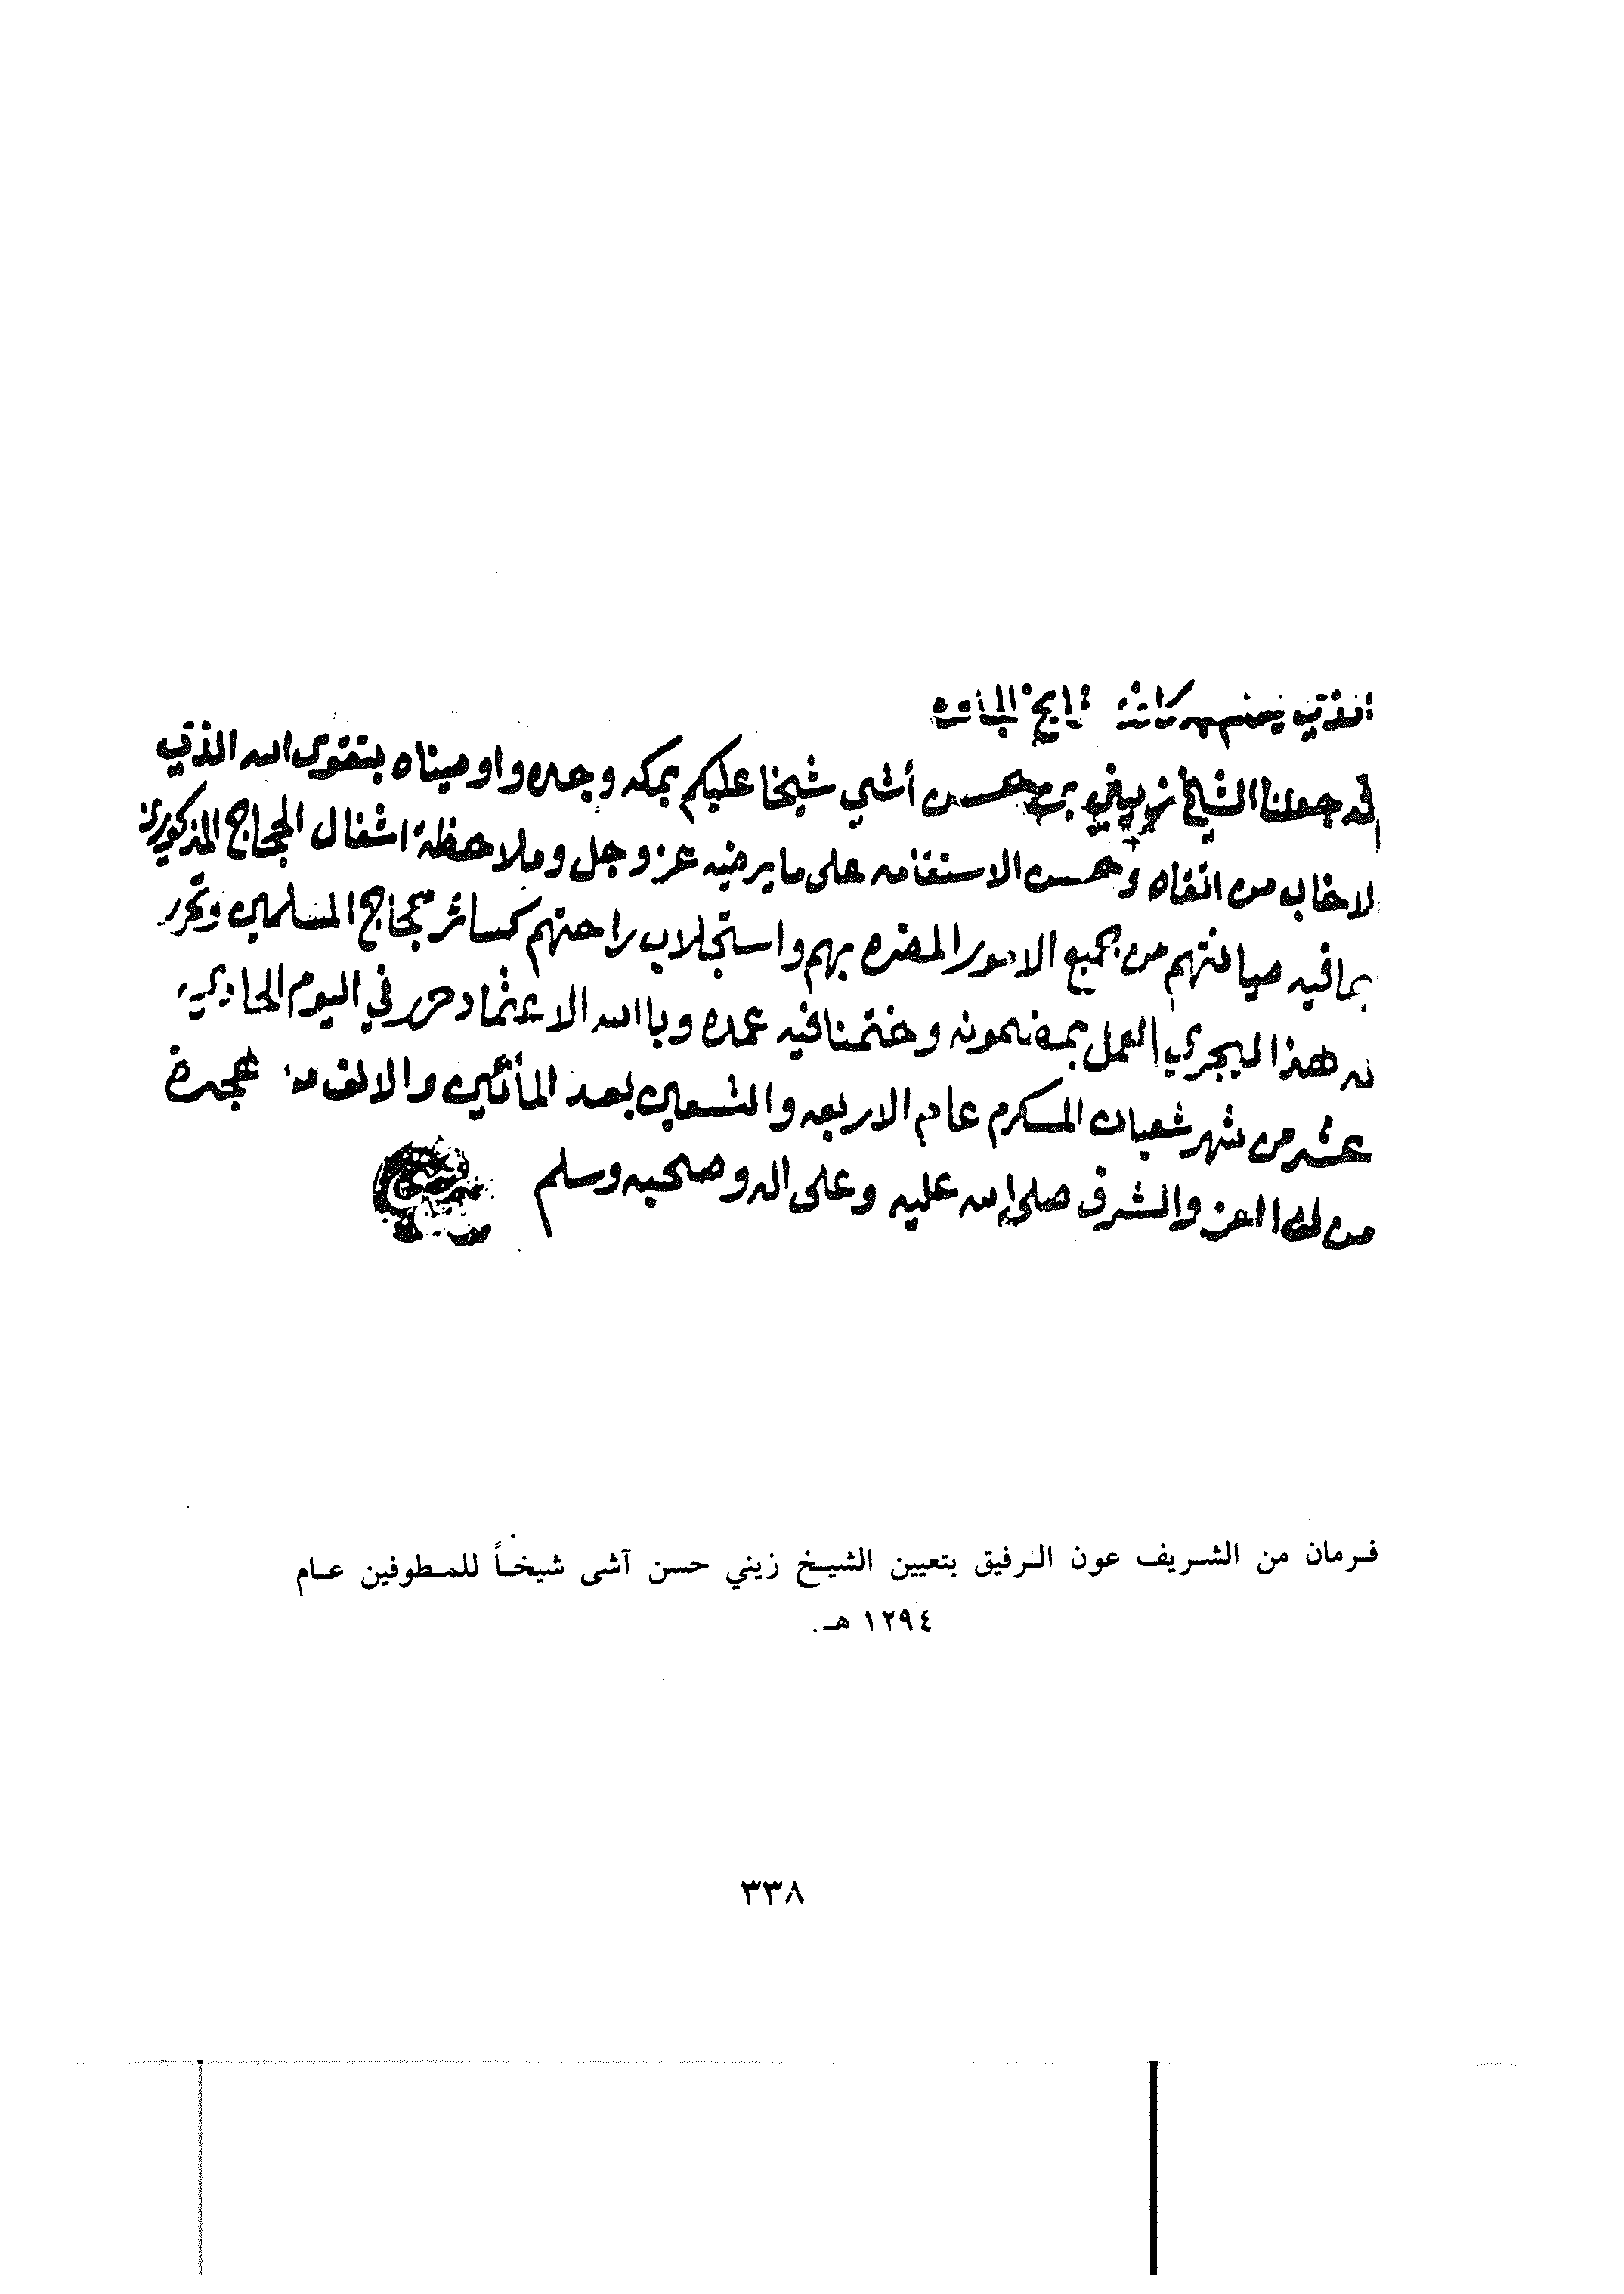 الذي
قد جعلنا الشيخ زيني بن حسن أشي شيخا عليكم بمكه وجده واوصيناه بتقوى الله الذي
لاخاب من اتقاه وحسن الاستقامه على مايرضيه عز وجل وملاحظة اشغال الحجاج المذكورين
بمافيه صيانتهم من جميع الامور المضره بهم واستجلاب راحتهم كسائر حجاج المسلمين وتحرر
له هذا ليجري العمل بمضمونه وختمنافيه عمده وباالله الاعتماد حرر في اليوم الحادي
عشر من شهر شعبان المكرم عام الاربعه والتسعين بعد المأتين والالف من هجرة
من له العز والشرف صلى الله عليه وعلى اله وصحبه وسلم
فرمان من الشريف عون الرفيق بتعيين الشيخ زيني حسن آشى شيخاً للمطوفين عام
١٢٩٤ هـ.
٣٣٨